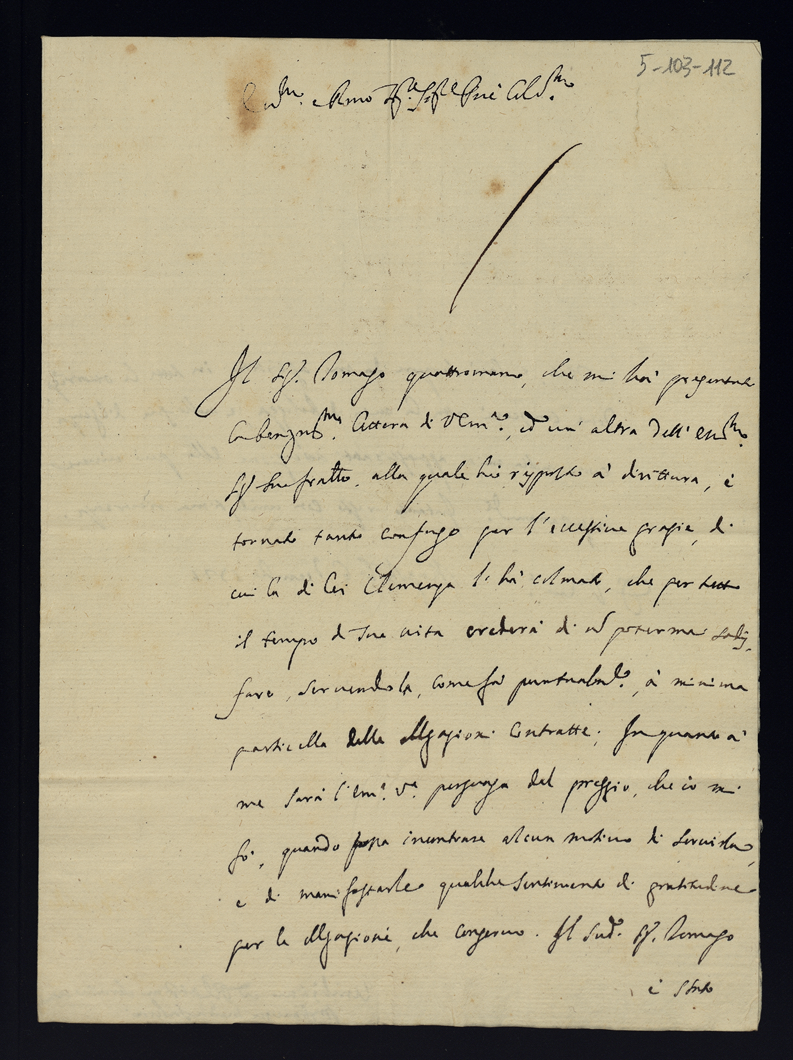 5-103-112
Em.mo e Rmo Sig.re Sig.re Prñe Col.mo
Il Sig.r Tomaso quattromani, che mi hà presentat
la benig.ma lettera di V. Em.a, ed un' altra dell' Em.mo
Sig.r Suo fratello, alla quale hò risposto à dirittura, è
tornato tanto confuso per l'eccessiva grazia, di
cui la di Lei Clemenza l'hà colmato, che per tutt
il tempo di sua vita crederà di nõ poterma sodis
fare, servendola, come fà puntualm.te, à minima
particella delle obligazioni contratte; In quanto à
me sarà l'Em.a V.a persuasa del preggio, che io mi
fò, quando possa incontrare alcun motivo di servirla,
e di manifestarle qualche sentimento di gratitudine
per le obligazioni, che conservo. Il Sud.o Sig.r Tomaso
è stato